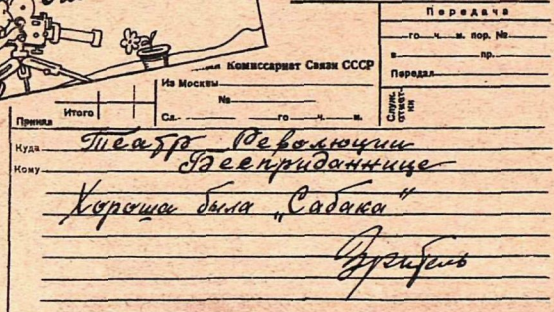 Передача
го ч. м. пор. №
в пр.
Передал
Служ. отмет-ки
Комиссариат Связи СССР
Из Москвы
№
Сл. го ч. м.
Итого
Принял
Куда Театр Революции
Кому Бесприданнице
Хороша была „Сабака“
Зритель